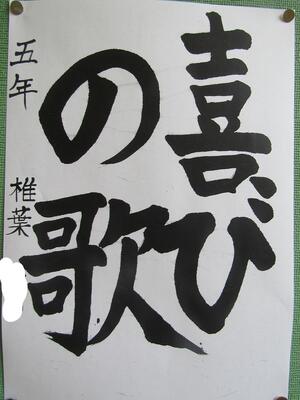 喜び
の歌
五年 椎葉